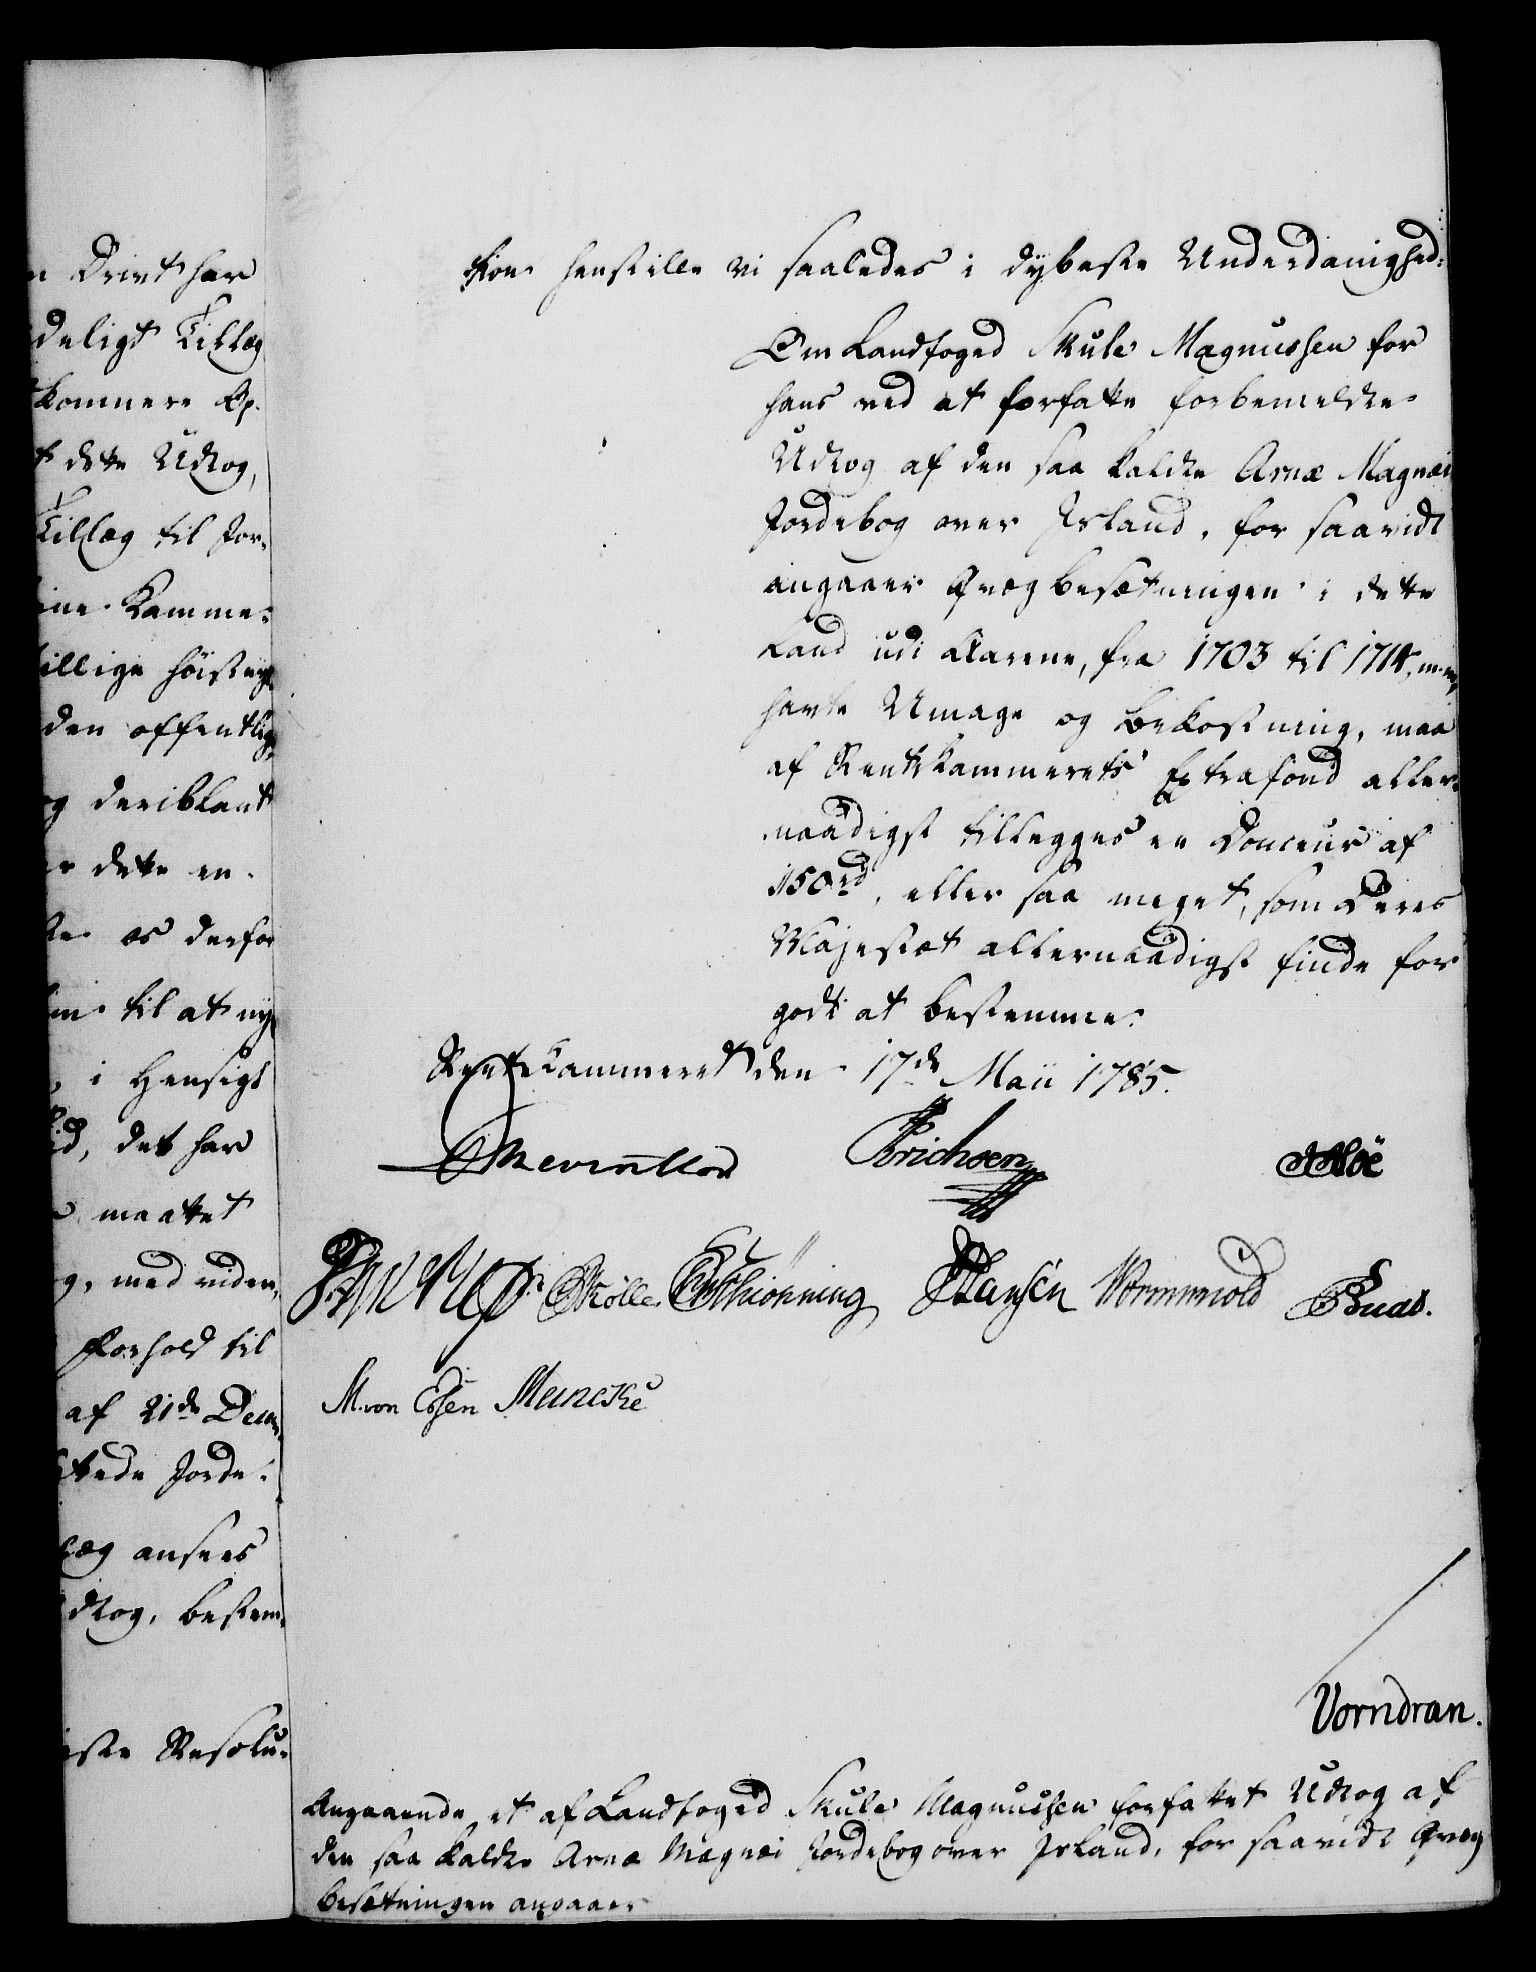 n Drivt har
deligt Tillæg
kommere Op-
t dette Udtog,
Tillæg til Jor-
ine Kamme-
tillige høist nyt-
den offentlig
og deriblant
er dette en-
os derfor
til at ny
i Hensigt
det har
maattet
med viden,
Forhold til
af 21de Decem
Jorde-
læg ansees
dtog, bestem-
ste Resolu-
tion henstille vi saaledes i dybeste Underdanighed:
Om Landfoged Skule Magnussen for
hans ved at forfatte forbemeldte
Udtog af den saa kaldte Arnæ Magnæi
Jordebog over Jisland, for saavidt
angaaer Qvægbesætningen i dette
Land udi Aarene, fra 1703 til 1714,
havte Umage og Bekostning, maa
af Rentekammerets Extrafond aller-
naadigst tillegges en Douceur af
150rd, eller saa meget, som Deres
Majestæt allernaadigst finde for
godt at bestemme.
Rentekammeret den 17de Maii 1785.
Erichsen
Møller Schiönning Hansén Wormwold
M. von Essen Meincke
Vorndran.
Angaaende et af Landfoged Skule Magnussen forfattet Udtog af
den saa kaldte Arnæ Magnæi Jordebog over Jsland, for saavidt Qvæg
besætningen angaaer